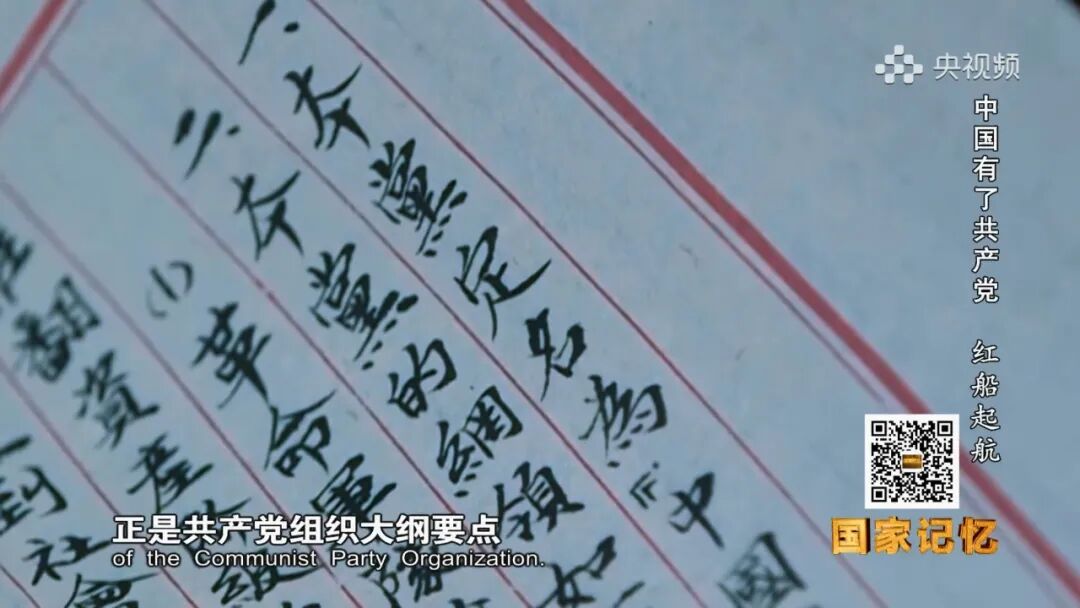 央视频
中国有了共产党 红船起航
一、本黨定名為『中國
二、本黨的綱領如
(1)革命軍
翻資產階級
到社會
正是共产党组织大纲要点
of the Communist Party Organization.
国家记忆